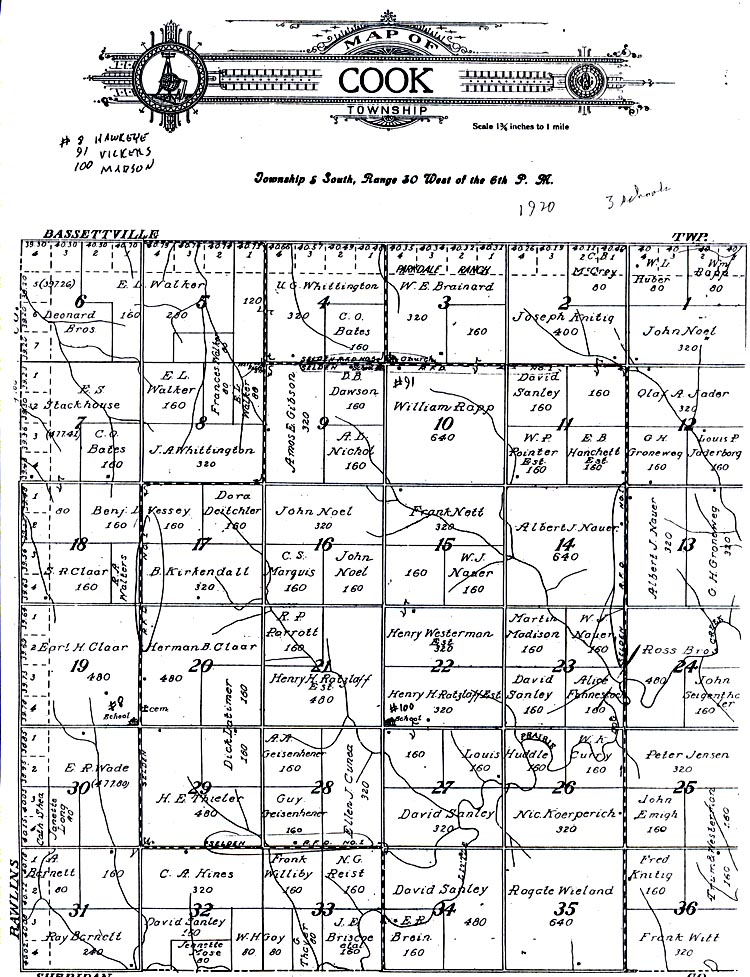 MAP OF
COOK
TOWNSHIP
Scale 1¾ inches to 1 mile
# 8 HAWKEYE
91 VICKERS
100 MADSON
Township 5 South, Range 30 West of the 6th P. M.
1920
3 schools
BASSETTVILLE
TWP.
6
5(39726)
Leonard Bros
160
E. L. Walker
5
280
120
Frances Walker 80
E. L. Walker 80
U. G. Whittington
4
320
C. O. Bates
160
PARKDALE RANCH
W. E. Brainard
3
320
160
McCroy
80
2
Joseph Knitig
400
W. L. Huber
80
Wm Rapp
80
1
John Noel
320
SELDEN R.F.D. NO.
Church
E. S. Stackhouse
7
(47741)
C. O. Bates
160
E. L. Walker
160
8
J. A. Whittington
320
Amos E. Gibson
320
B. B. Dawson
160
9
A. L. Nichol
160
#91
William Rapp
10
640
David Sanley
160
160
11
W. P. Pointer Est
160
E B Hanchett Est
160
Olaf A. Jader
320
12
G H Groneweg
160
Louis P Joderborg
160
80
Benj. L Vessey
160
160
18
S. R Claar
160
Dora Deitchler
160
17
B. Kirkendall
320
John Noel
320
16
C. S. Marquis
160
John Noel
160
Frank Nett
320
15
160
W. J. Nauer
160
Albert J. Nauer
14
640
Albert J. Nauer
320
13
G. H. Groneweg
320
Earl H. Claar
19
480
#8
School
Herman B. Claar
20
480
Dick Latimer
160
R. P. Parrott
160
21
Henry H. Ratzlaff Est
480
Henry Westerman Est
320
22
Henry H. Ratzlaff Est
320
#100
School
Martin Madison
160
W. J. Nauer
160
23
David Sanley
160
Alice
160
Ross Bros
24
480
John Seigenthaler
160
E R Wade
30
(47780)
Janette Long
80
29
H. E. Thieler
480
SELDEN
R.F.D. NO. 1
A. A. Geisenhener
160
28
Guy Geisenhener
160
Ellen J. Cunea
320
160
Louis Huddle
160
27
David Sanley
320
PRAIRIE
W. K. Curry
160
26
Nic. Koerperich
320
Peter Jensen
320
25
John Emigh
160
160
RAWLINS
A. Barnett
80
160
31
Ray Barnett
240
C. A. Hines
320
32
David Sanley
160
Jeanette Rose
80
W. H Gay
80 80
Frank Williby
160
N. G. Reist
160
33
J. E. Briscoe etal
160
David Sanley
34
E R Brain
160
480
Rogate Wieland
35
640
Fred Knitig
160
160
36
Frank Witt
320
SHERIDAN
CO.